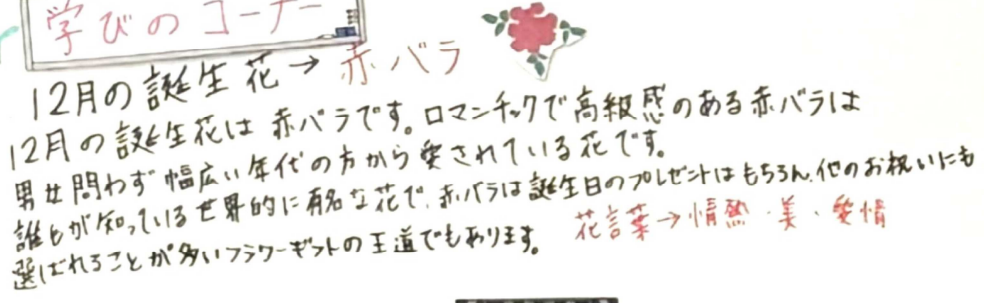 学びのコーナー
12月の誕生花→赤バラ
12月の誕生花は赤バラです。ロマンチックで高級感のある赤バラは
男女問わず幅広い年代の方から愛されている花です。
誰もが知っている世界的に有名な花で、赤バラは誕生日のプレゼントはもちろん、他のお祝いにも
選ばれることが多いフラワーギフトの王道でもあります。
花言葉→情熱・美・愛情